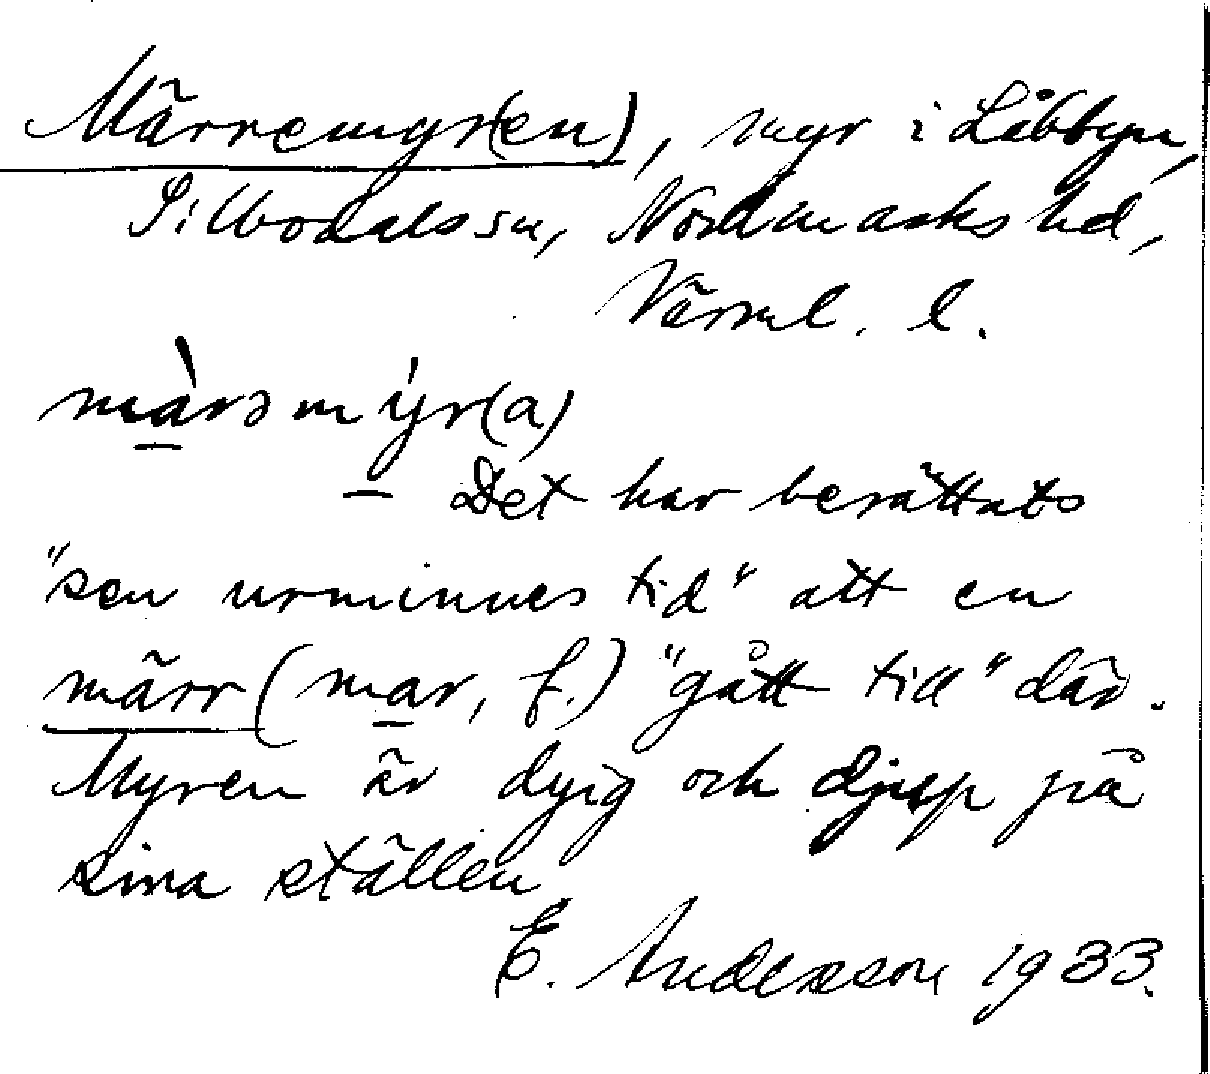 Märremyr(en), myr i Låbbyn,
Silbodals sn, Nordmarks hd,
Värml. l.
màrəmýr(a)
Det har berättats
"sen urminnes tid" att en
märr (mar, f.) "gått till" där.
Myren är dyig och djup på
sina ställen
E. Andersson 1933.